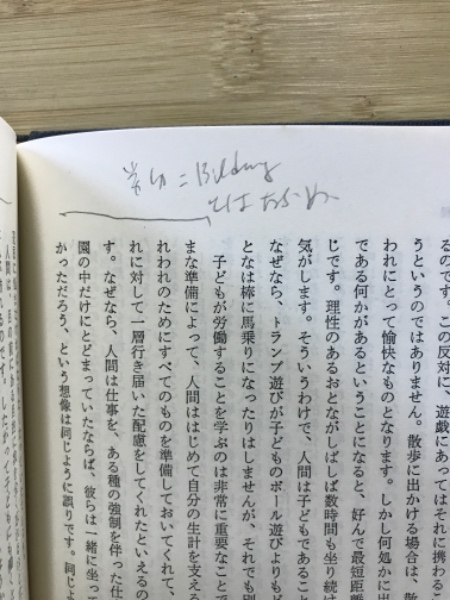 = Bildung
るのです。この反対に、遊戯にあってはそれに携わるこ
うというのではありません。散歩に出かける場合は、散
われにとって愉快なものとなります。しかし何処かに出
である何かがあるということになると、好んで最短距離
じです。理性のあるおとながしばしば数時間も坐り続け
気がします。そういうわけで、人間は子どもであること
なぜなら、トランプ遊びが子どものボール遊びよりもど
となは棒に馬乗りになったりはしませんが、それでも別
子どもが労働することを学ぶのは非常に重要なことで
まな準備によって、人間ははじめて自分の生計を支える
れわれのためにすべてのものを準備しておいてくれて、
れに対して一層行き届いた配慮をしてくれたといえるの
す。なぜなら、人間は仕事を、ある種の強制を伴った仕
園の中だけにとどまっていたならば、彼らは一緒に坐って
かっただろう、という想像は同じように誤りです。同じよ